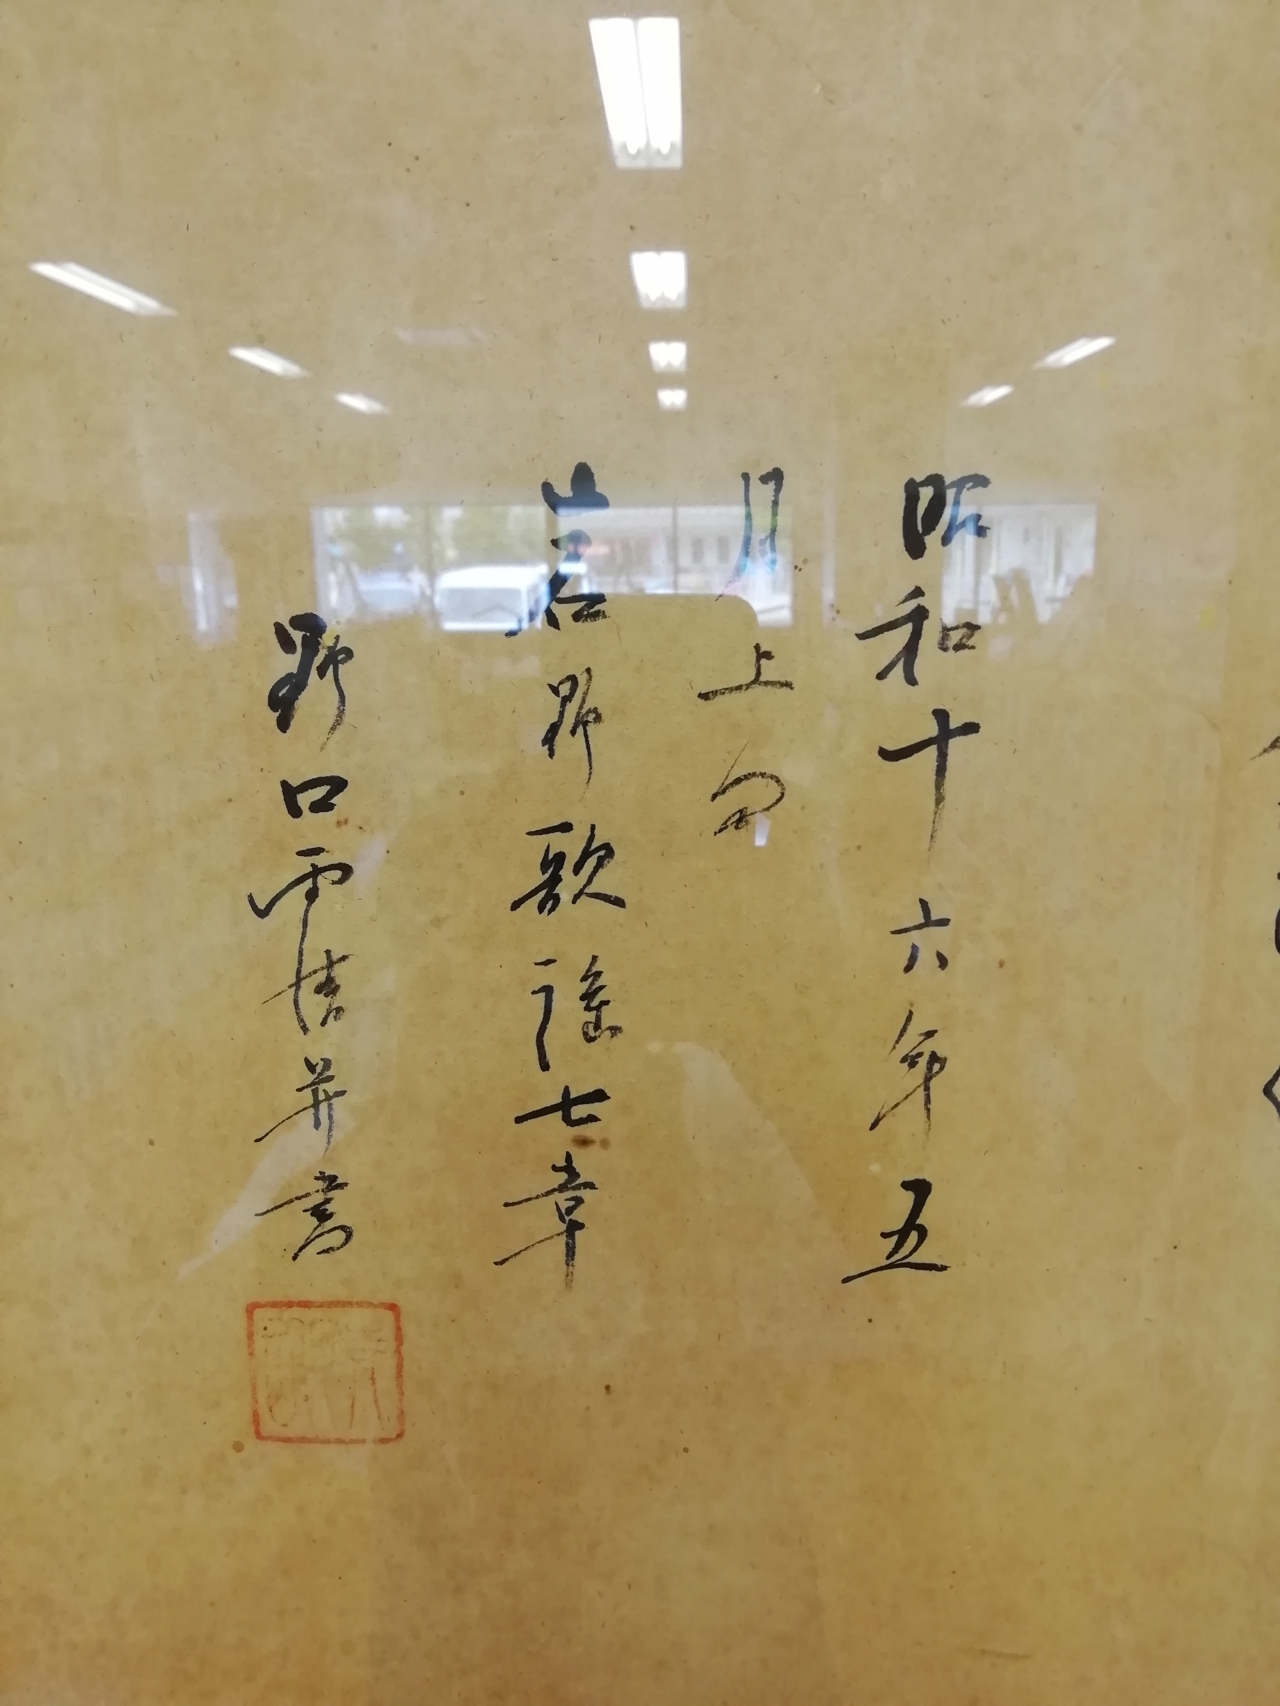 昭和十六年五
月上旬
岩野歌謡七章
野口雨情并書